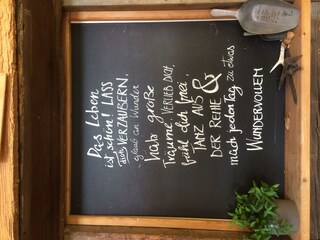 Das Leben
ist schön! LASS
dich VERZAUBERN,
glaub an Wunder
hab große
Träume, VERLIEB DICH,
fühl dich frei,
TANZ AUS
DER REIHE &
mach jeden Tag zu etwas
WUNDERVOLLEM